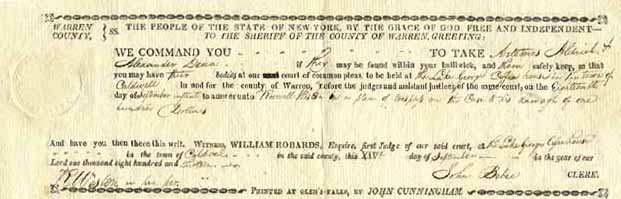 WARREN COUNTY, } SS. THE PEOPLE OF THE STATE OF NEW-YORK, BY THE GRACE OF GOD FREE AND INDEPENDENT—
TO THE SHERIFF OF THE COUNTY OF WARREN, GREETING:
WE COMMAND YOU TO TAKE Artemas Aldrich &
Alexander Dean if they may be found within your bailiwick, and them safely keep, so that
you may have their bodies at our court of common pleas, to be held at the Lake George Coffee house in the town of
Caldwell in and for the county of Warren, before the judges and assistant justices of the same court, on the Eighteenth
day of September instant to answer unto Roswell in a plea of trespass on the Case to his damage of one
hundred dollars
And have you then there this writ. WITNESS, WILLIAM ROBARDS, Esquire, first Judge of our said court, at the Lake George Coffee house
in the town of Caldwell in the said county, this day of September in the year of our
Lord one thousand eight hundred and
Weston John CLERK.
PRINTED AT GLEN'S-FALLS, BY JOHN CUNNINGHAM